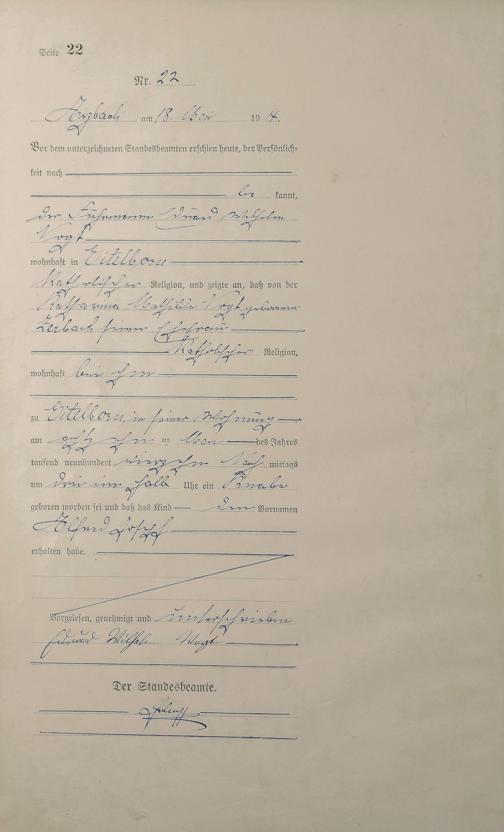 Seite 22
Nr. 22
Arzbach am 18. Mai 1914.
Vor dem unterzeichneten Standesbeamten erschien heute, der Persönlich-
keit nach
be kannt,
der Fuhrmann Eduard Wilhelm
Vogt
wohnhaft in Eitelborn
Katholischer Religion, und zeigte an, daß von der
Katharina Mathilde Vogt geborene
Zerbach seiner Ehefrau
Katholischer Religion,
wohnhaft bei ihm
zu Eitelborn, in seiner Wohnung
am achtzehn ten Mai des Jahres
tausend neunhundert vierzehn Nach mittags
um drei ein halb Uhr ein Knabe
geboren worden sei und daß das Kind den Vornamen
Alfred Joseph
erhalten habe.
Vorgelesen, genehmigt und unterschrieben
Eduard Wilhelm Vogt
Der Standesbeamte.